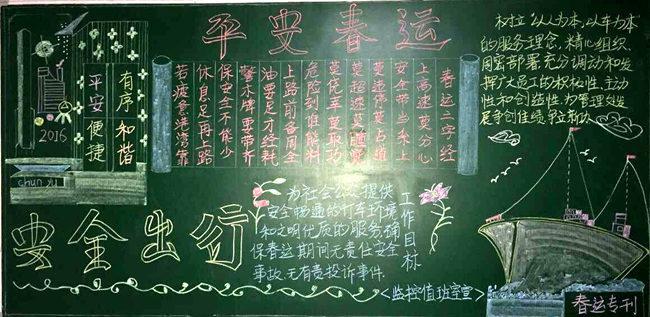 平安春运
有序和谐
平安便捷
2016
chun yu
春运三字经
上高速莫分心
安全带当系上
莫逆停莫占道
莫超速莫酒驾
莫侥幸莫取巧
危险到谁能料
上路前备周全
油要足才经耗
警示牌要带齐
保安全不能少
休息足再上路
若疲惫港湾靠
树立“以人为本，以车为本”
的服务理念，精心组织
周密部署，充分调动和发
挥广大员工的积极性、主动
性和创造性，为管理处发
展争创佳绩，争立新功。
安全出行
工作目标
为社会公众提供
安全畅通的行车环境
和文明优质的服务，确
保春运期间无责任安全
事故，无有责投诉事件.
<监控值班室宣>
春运专刊